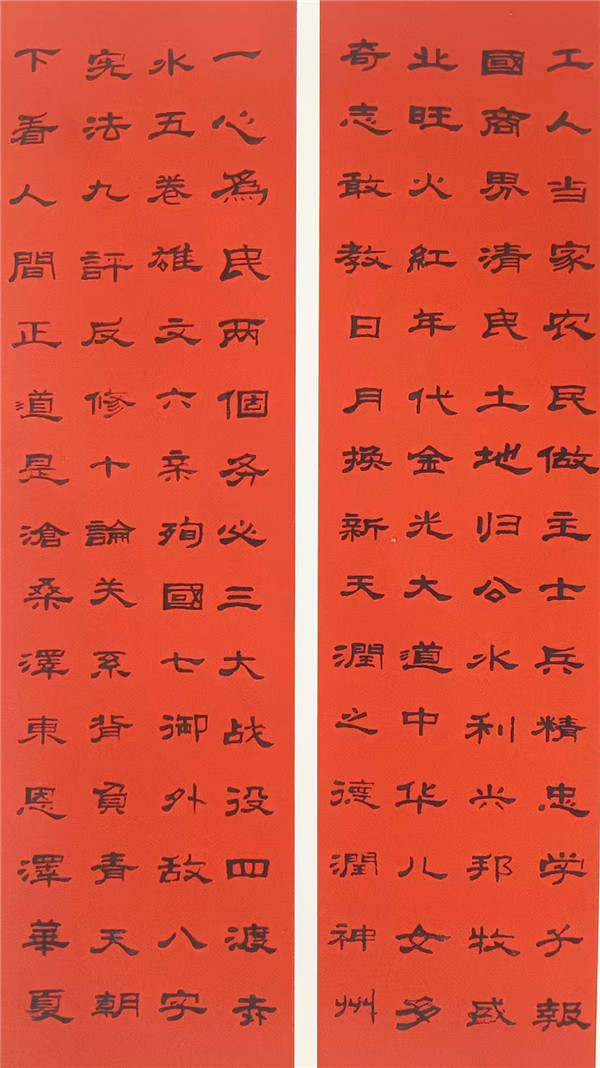 工人当家农民做主士兵精忠学子報
國商界清民土地归公水利兴邦牧盛
业旺火紅年代金光大道中华儿女多
奇志敢教日月換新天潤之德潤神州
一心爲民两個务必三大战役四渡赤
水五卷雄文六亲殉國七御外敌八字
宪法九評反修十論关系背負青天朝
下看人間正道是滄桑澤東恩澤華夏